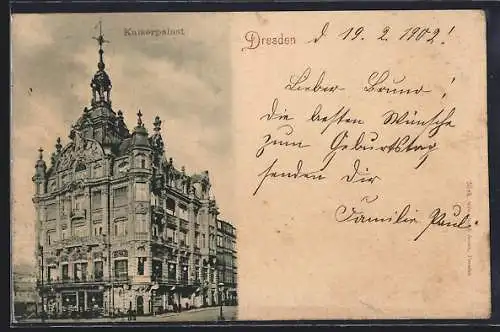 Kaiserpalast
Dresden d 19. 2. 1902!
Lieber Bruno!
Die besten Wünsche
zum Geburtstag
senden Dir
Familie Paul.